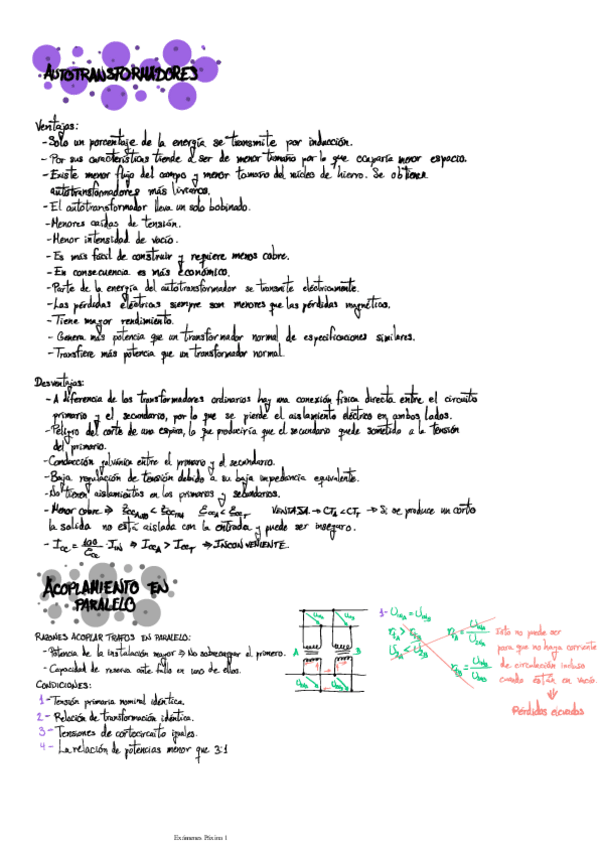 AUTOTRANSFORMADORES
Ventajas:
- Solo un porcentaje de la energía se transmite por inducción.
- Por sus características tiende a ser de menor tamaño por lo que ocuparía menor espacio.
- Existe menor flujo del campo y menor tamaño del núcleo de hierro. Se obtienen
autotransformadores más livianos.
- El autotransformador lleva un solo bobinado.
- Menores caídas de tensión.
- Menor intensidad de vacío.
- Es más fácil de construir y requiere menos cobre.
- En consecuencia es más económico.
- Parte de la energía del autotransformador se transmite eléctricamente.
- Las pérdidas eléctricas siempre son menores que las pérdidas magnéticas.
- Tiene mayor rendimiento.
- Genera más potencia que un transformador normal de especificaciones similares.
- Transfiere más potencia que un transformador normal.
Desventajas:
- A diferencia de los transformadores ordinarios hay una conexión física directa entre el circuito
primario y el secundario, por lo que se pierde el aislamiento eléctrico en ambos lados.
- Peligro del corte de una espira, lo que produciría que el secundario quede sometido a la tensión
del primario.
- Conducción galvánica entre el primario y el secundario.
- Baja regulación de tensión debido a su baja impedancia equivalente.
- No tienen aislamientos en los primarios y secundarios.
- Menor cobre ⇒ < VENTAJA → CTA < CTT → Si se produce un corto
la salida no está aislada con la entrada y puede ser inseguro.
- Icc = 100/Ecc · IIN ⇒ IccA > IccT ⇒ INCONVENIENTE.
ACOPLAMIENTO EN
PARALELO
RAZONES ACOPLAR TRAFOS EN PARALELO:
- Potencia de la instalación mayor ⇒ No sobrecargar el primero.
- Capacidad de reserva ante fallo en uno de ellos.
CONDICIONES:
1 - Tensión primaria nominal idéntica.
2 - Relación de transformación idéntica.
3 - Tensiones de cortocircuito iguales.
4 - La relación de potencias menor que 3:1
A B
1- U1NA = U1NB
rtA > rtB
U2A < U2B
rtA = U1NA/U2NA
rtB = U1NB/U2NB
Esto no puede ser
para que no haya corriente
de circulación incluso
cuando están en vacío.
Pérdidas elevadas
Exámenes Púxizo 1